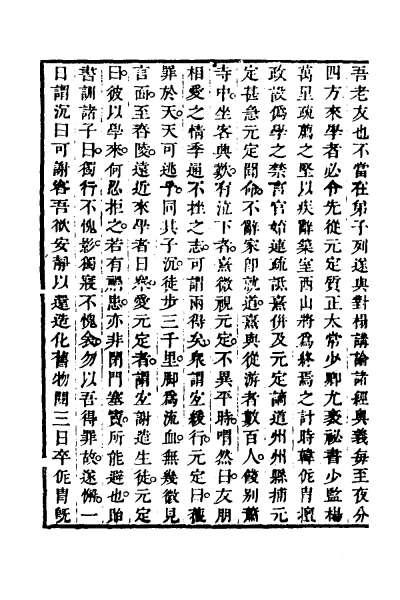 吾老友也不當在弟子列遂與對榻講論諸經奧義每至夜分
四方來學者必令先從元定質正太常少卿尤袤祕書少監楊
萬里疏薦之堅以疾辭築室西山將為終焉之計時韓侂冑擅
政設偽學之禁言官始連疏詆熹併及元定謫道州州縣捕元
定甚急元定聞命不辭家即就道熹與從游者數百人餞別蕭
寺中坐客興歎有泣下者熹微視元定不異平時喟然曰友朋
相愛之情季通不挫之志可謂兩得矣衆謂宜緩行元定曰獲
罪於天天可逃乎同其子沉徒步三千里脚為流血無幾微見
言面至舂陵遠近來學者日衆愛元定者謂宜謝遣生徒元定
曰彼以學來何忍拒之若有禍患亦非閉門塞竇所能避也貽
書訓諸子曰獨行不愧影獨寢不愧衾勿以吾得罪故遂懈一
日謂沉曰可謝客吾欲安靜以還造化舊物閱三日卒侂冑旣